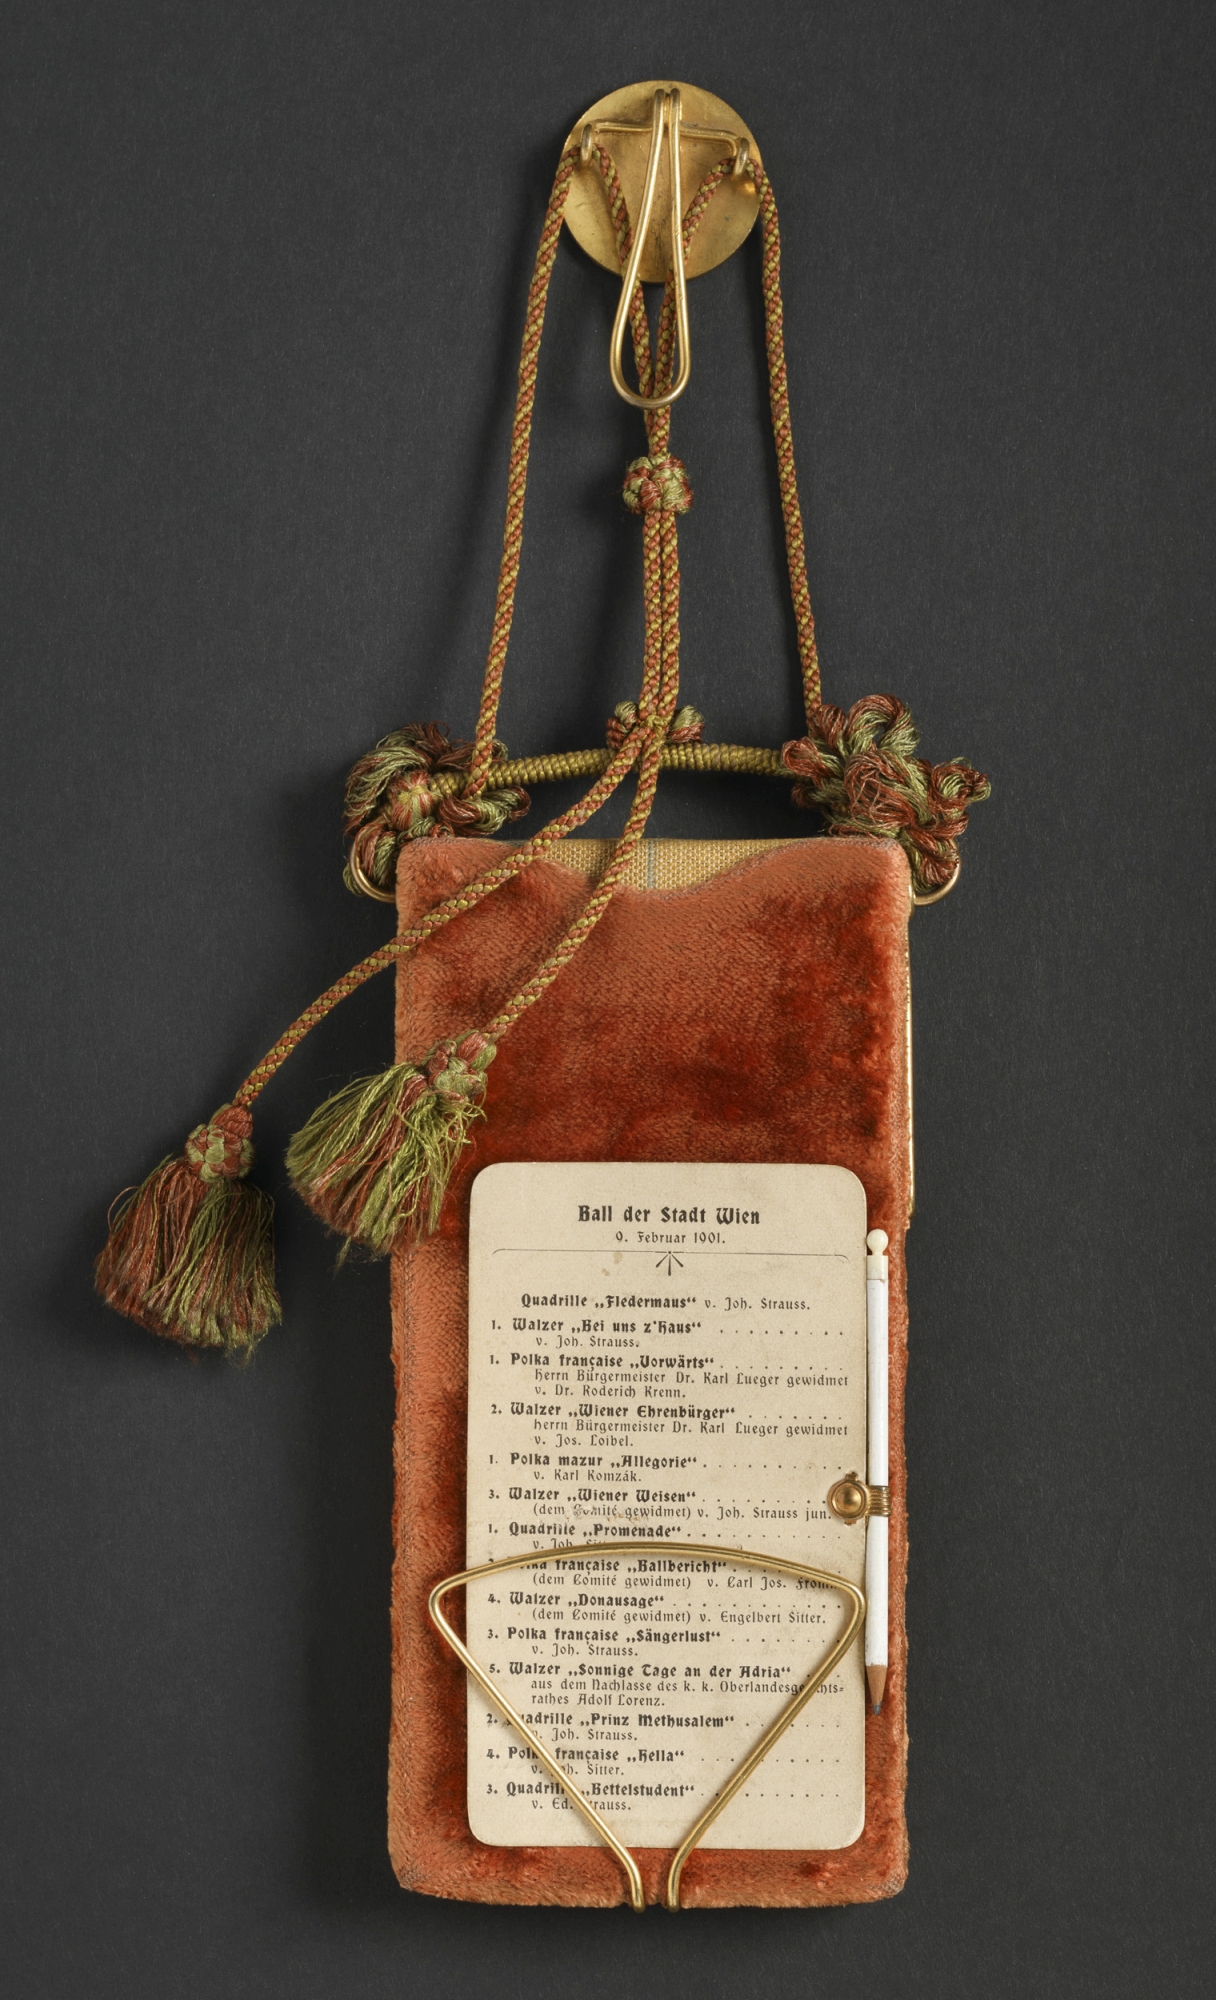 Ball der Stadt Wien
9. Februar 1901.
Quadrille „Fledermaus“ v. Joh. Strauss.
1. Walzer „Bei uns z'Haus“ . . . . . . . .
v. Joh. Strauss.
1. Polka française „Vorwärts“ . . . . . . . .
Herrn Bürgermeister Dr. Karl Lueger gewidmet
v. Dr. Roderich Krenn.
2. Walzer „Wiener Ehrenbürger“ . . . . . . .
Herrn Bürgermeister Dr. Karl Lueger gewidmet
v. Jos. Loibel.
1. Polka mazur „Allegorie“ . . . . . . . . .
v. Karl Komzák.
3. Walzer „Wiener Weisen“ . . . . . . . .
(dem Comité gewidmet) v. Joh. Strauss jun.
1. Quadrille „Promenade“ . . . . . . . . . .
v. Joh.
française „Ballbericht“ . . . . . . .
(dem Comité gewidmet) v. Carl Jos.
4. Walzer „Donausage“ . . . . . . . . . .
(dem Comité gewidmet) v. Engelbert Sitter.
3. Polka française „Sängerlust“ . . . . . . .
v. Joh. Strauss.
5. Walzer „Sonnige Tage an der Adria“ . . .
aus dem Nachlasse des k. k. Oberlandesgerichts=
rathes Adolf Lorenz.
2. Quadrille „Prinz Methusalem“ . . . . . .
v. Joh. Strauss.
4. Polka française „Hella“ . . . . . . . . .
v. Joh. Sitter.
3. Quadrille „Bettelstudent“ . . . . . . . .
v. Ed. Strauss.